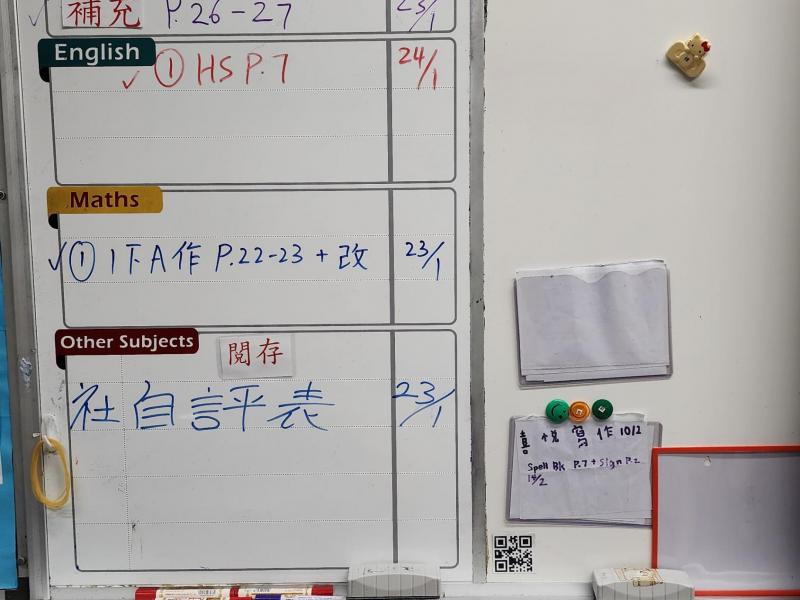 補充 P.26-27 23/1
English
✓ ① HS P.7 24/1
Maths
✓ ① 1下A作 P.22-23 + 改 23/1
Other Subjects 閱存
社自評表 23/1
喜悅寫作 10/2
Spell Bk P.7 + Sign P.2
14/2